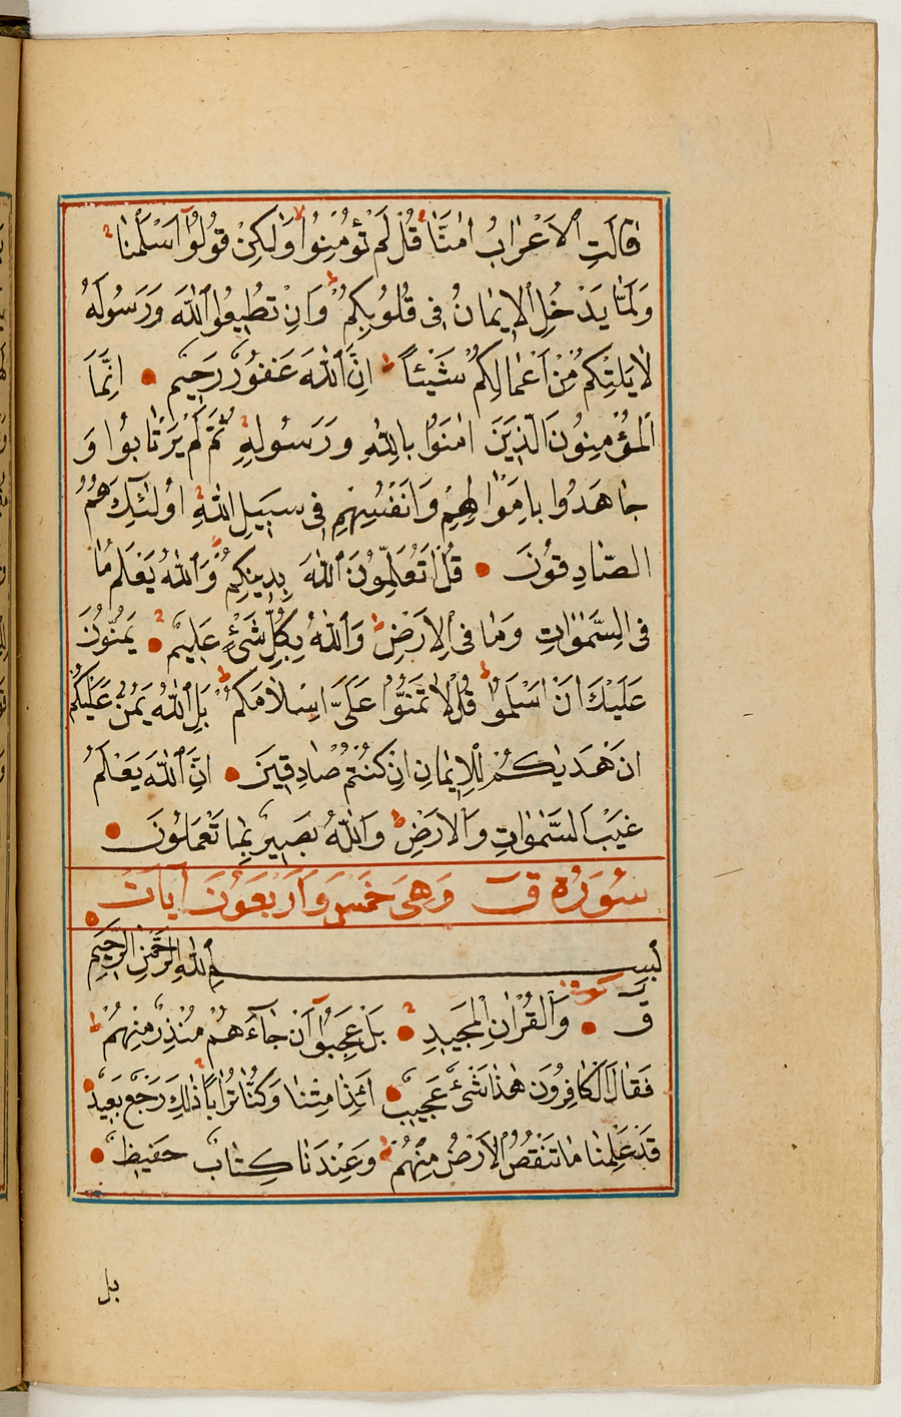 قَالَتِ الْاَعْرَابُ اٰمَنَّا قُلْ لَمْ تُؤْمِنُوا وَلٰكِنْ قُولُوٓا اَسْلَمْنَا
وَلَمَّا يَدْخُلِ الْاِيمَانُ فِى قُلُوبِكُمْ ط وَاِنْ تُطِيعُوا اللّٰهَ وَرَسُولَهُ
لَا يَلِتْكُمْ مِنْ اَعْمَالِكُمْ شَيْئًا ط اِنَّ اللّٰهَ غَفُورٌ رَحِيمٌ اِنَّمَا
الْمُؤْمِنُونَ الَّذِينَ اٰمَنُوا بِاللّٰهِ وَرَسُولِهِ ثُمَّ لَمْ يَرْتَابُوا وَ
جَاهَدُوا بِاَمْوَالِهِمْ وَاَنْفُسِهِمْ فِى سَبِيلِ اللّٰهِ اُولٰٓئِكَ هُمُ
الصَّادِقُونَ قُلْ اَتُعَلِّمُونَ اللّٰهَ بِدِينِكُمْ ط وَاللّٰهُ يَعْلَمُ مَا
فِى السَّمٰوَاتِ وَمَا فِى الْاَرْضِ ط وَاللّٰهُ بِكُلِّ شَىْءٍ عَلِيمٌ يَمُنُّونَ
عَلَيْكَ اَنْ اَسْلَمُوا ط قُلْ لَا تَمُنُّوا عَلَىَّ اِسْلَامَكُمْ ط بَلِ اللّٰهُ يَمُنُّ عَلَيْكُمْ
اَنْ هَدٰيكُمْ لِلْاِيمَانِ اِنْ كُنْتُمْ صَادِقِينَ اِنَّ اللّٰهَ يَعْلَمُ
غَيْبَ السَّمٰوَاتِ وَالْاَرْضِ ط وَاللّٰهُ بَصِيرٌ بِمَا تَعْمَلُونَ
سُورَةُ قٓ وَهِىَ خَمْسٌ وَاَرْبَعُونَ اٰيَاتٍ
بِسْمِ اللّٰهِ الرَّحْمٰنِ الرَّحِيمِ
قٓ وَالْقُرْاٰنِ الْمَجِيدِ بَلْ عَجِبُوٓا اَنْ جَآءَهُمْ مُنْذِرٌ مِنْهُمْ ط
فَقَالَ الْكَافِرُونَ هٰذَا شَىْءٌ عَجِيبٌ ءَاِذَا مِتْنَا وَكُنَّا تُرَابًا ذٰلِكَ رَجْعٌ بَعِيدٌ
قَدْ عَلِمْنَا مَا تَنْقُصُ الْاَرْضُ مِنْهُمْ ط وَعِنْدَنَا كِتَابٌ حَفِيظٌ
بل